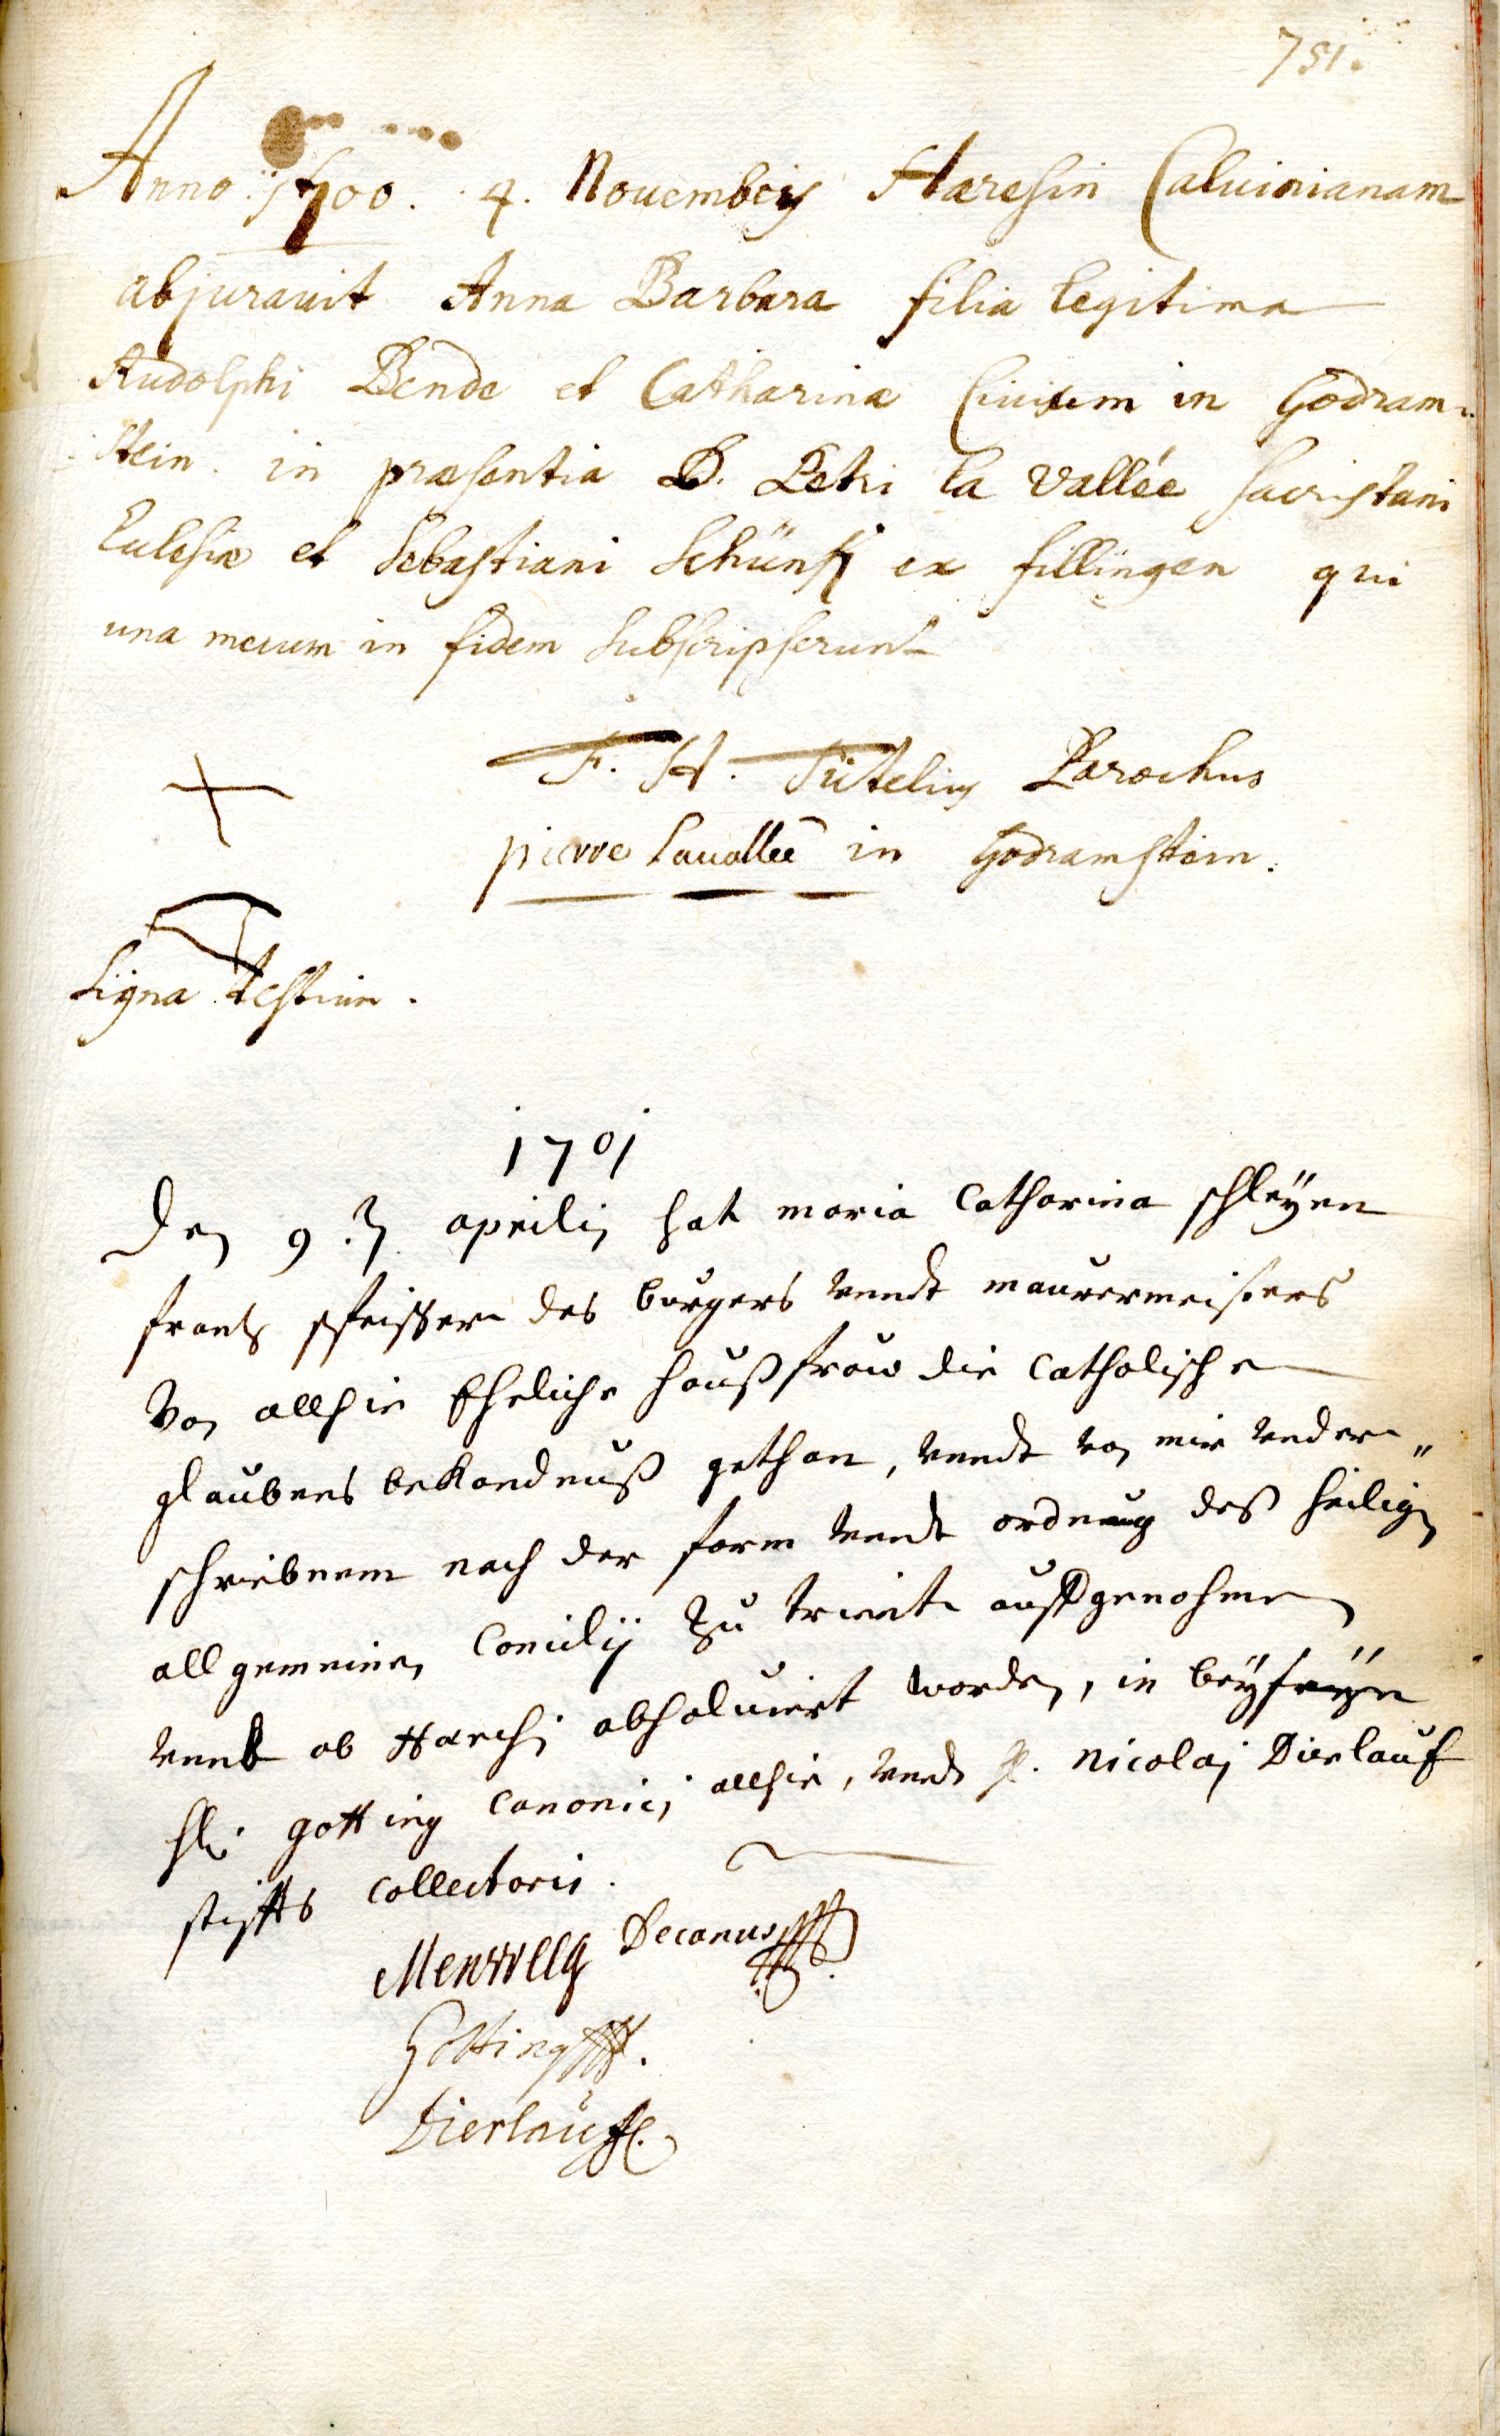 751.
Anno 1700. 4. Novembris Haeresin Calvinianam
abjuravit Anna Barbara filia legitima
Rudolphi Bende et Catharinae Civium in Godram-
stein. in praesentia D. Petri la vallée sacristani
Ecclesiae et Sebastiani Schünss ex fillingen qui
una mecum in fidem subscripserunt
F. H. Sütelius Parochus
pierre lavallee in Godramstein.
Signa testium.
1701
Den 9. aprilis hat maria Catharina schleyen
frantz pfeiffer des burgers vundt maurermeisters
von allhie Eheliche haußfraw die Catholische
glaubens bekandnuß gethan, vundt von mir vnder„
schriebnem nach der form vundt ordnung deß heiligen
allgemeinen Concilij zu trient auffgenohmen
vundt ab Haeresi absolviert worden, in beyseyn
gotting Canonici allhie, vundt H. Nicolai Dierlauf
stiffts Collectoris.
Menweeg Decanus
Gotting
Dierlauff.